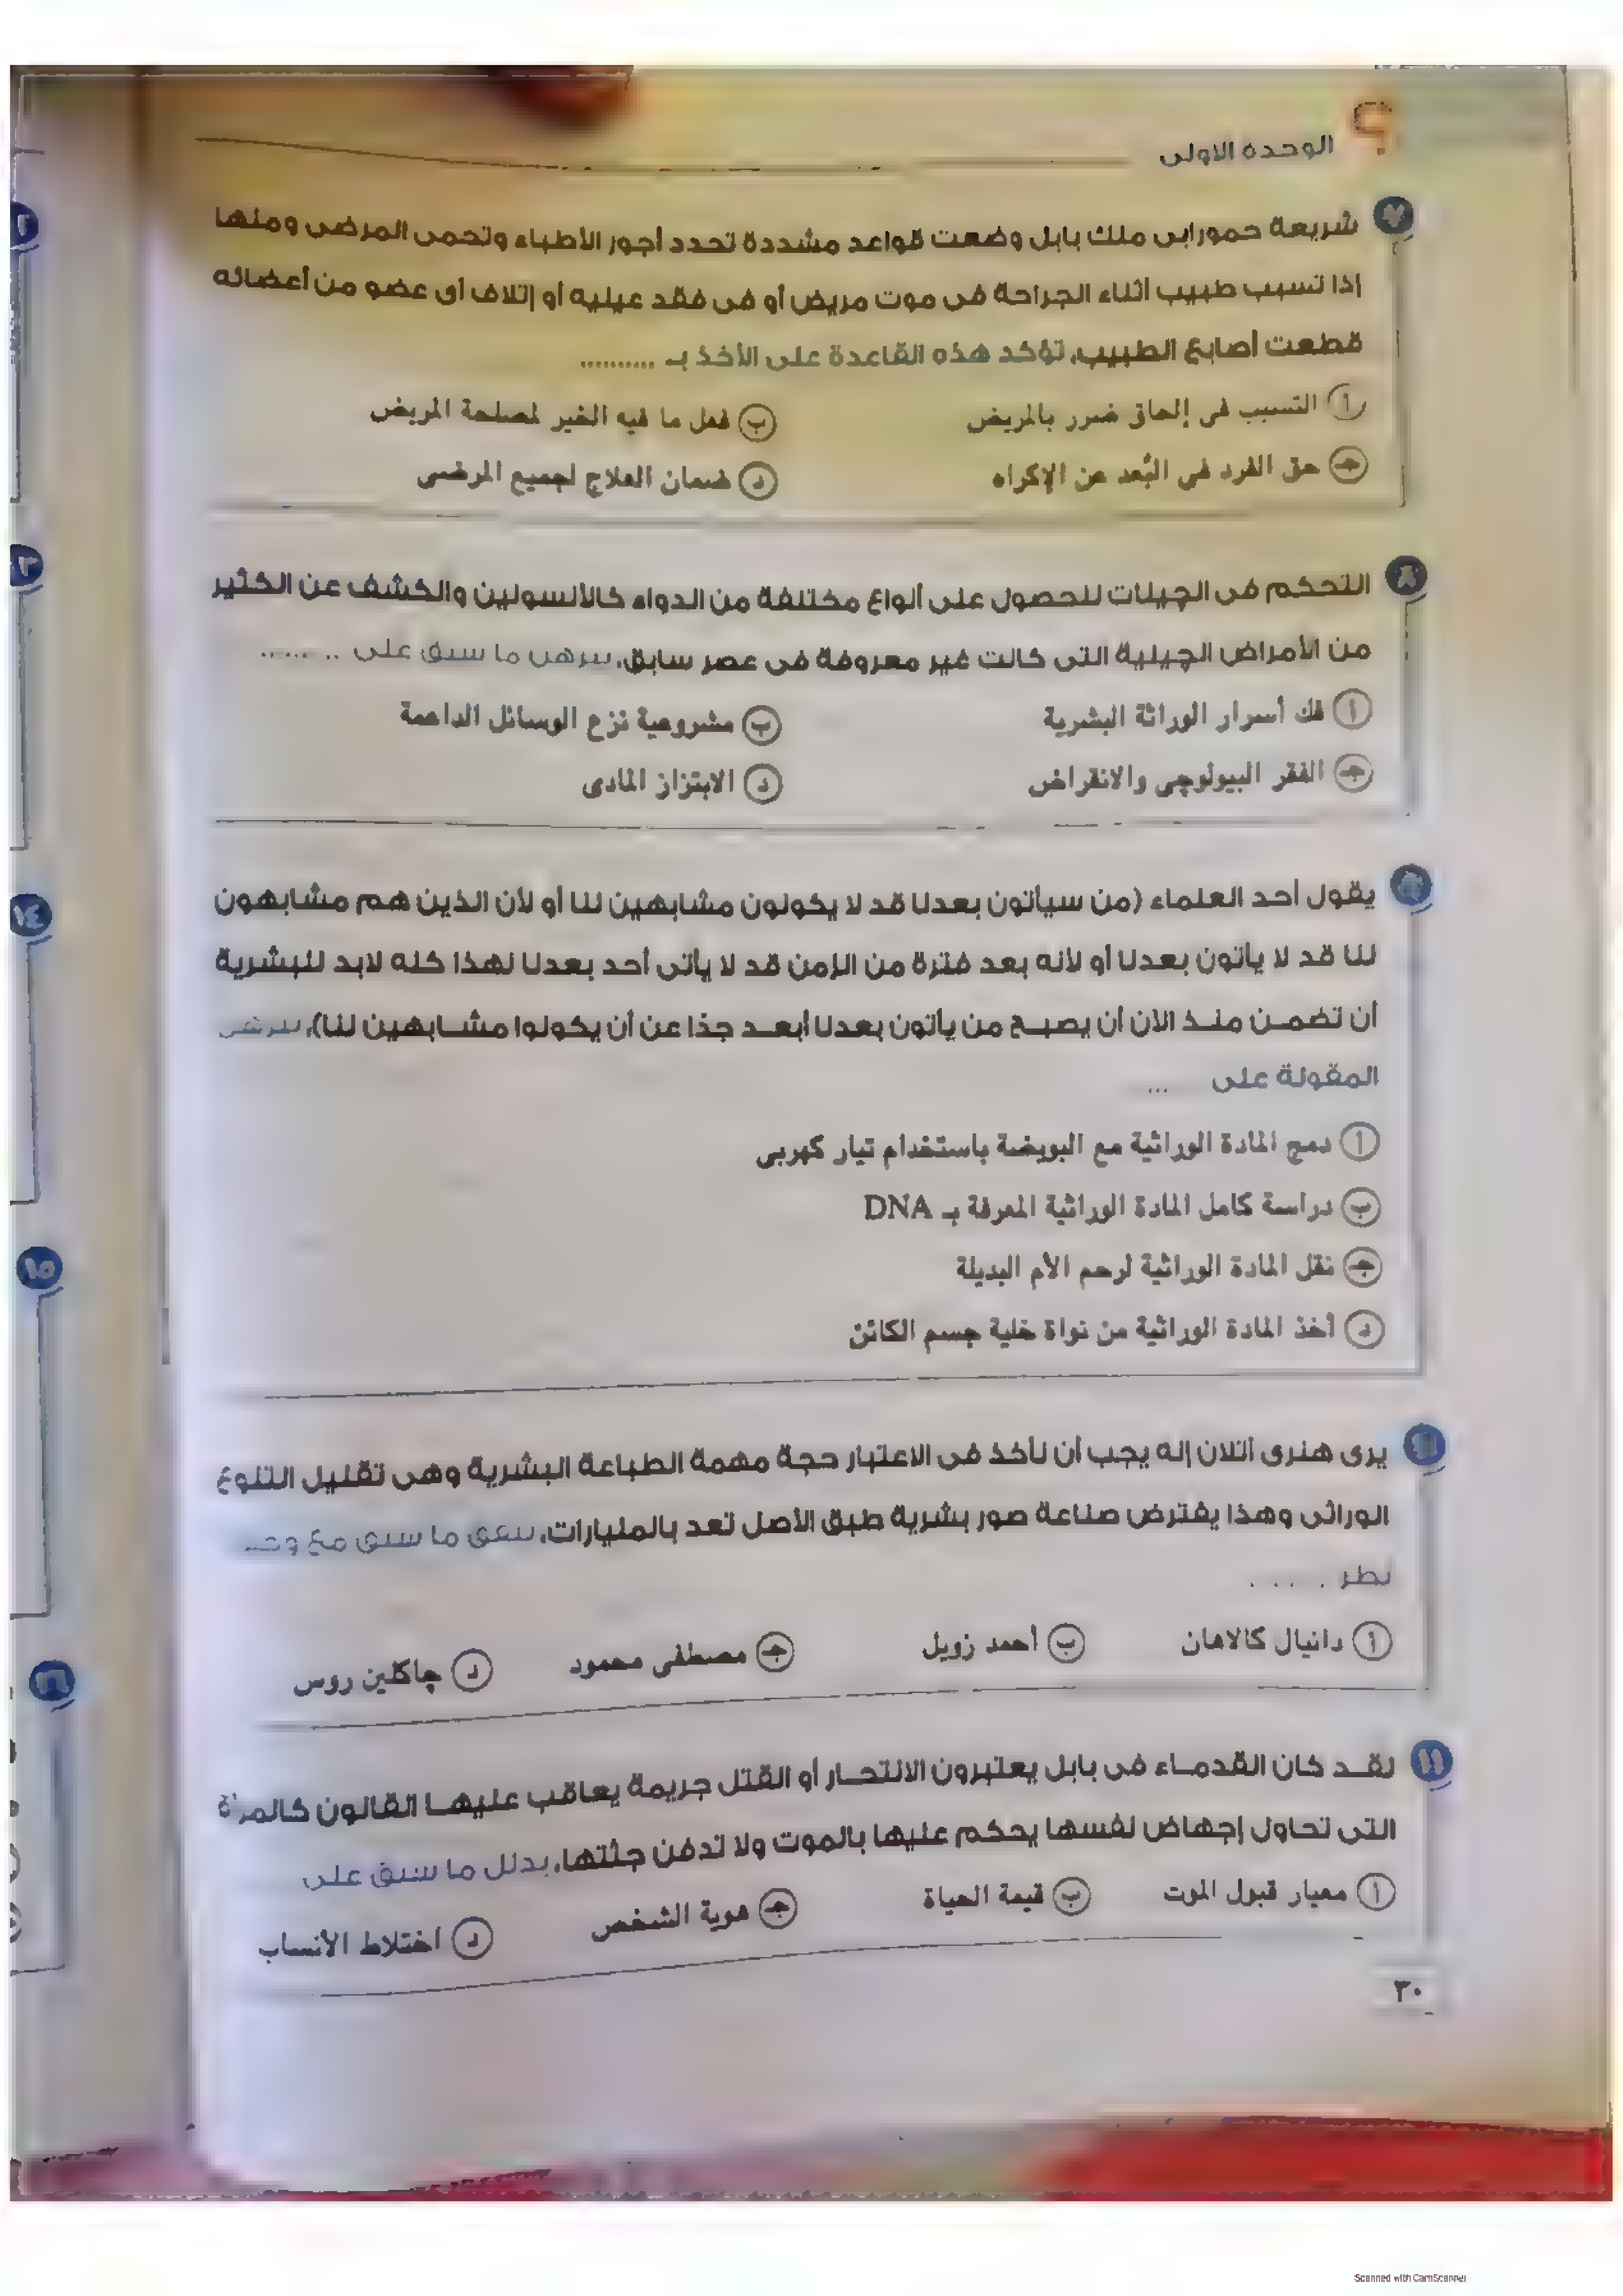 الوحدة الأولى
٧ شريعة حمورابى ملك بابل وضعت قواعد مشددة تحدد أجور الأطباء وتحمى المرضى ومنها
إذا تسبب طبيب أثناء الجراحة فى موت مريض أو فى فقد عينيه أو إتلاف أى عضو من أعضائه
قطعت أصابع الطبيب، تؤكد هذه القاعدة على الأخذ بـ ..........
أ التسبب فى إلحاق ضرر بالمريض
ب فعل ما فيه الخير لمصلحة المريض
جـ حق الفرد فى البُعد عن الإكراه
د ضمان العلاج لجميع المرضى
٨ التحكم فى الچينات للحصول على أنواع مختلفة من الدواء كالأنسولين والكشف عن الكثير
من الأمراض الچينية التى كانت غير معروفة فى عصر سابق، يبرهن ما سبق على .. ......
أ فك أسرار الوراثة البشرية
ب مشروعية نزع الوسائل الداعمة
جـ الفقر البيولوچى والانقراض
د الابتزاز المادى
يقول أحد العلماء (من سيأتون بعدنا قد لا يكونون مشابهين لنا أو لأن الذين هم مشابهون
لنا قد لا يأتون بعدنا أو لأنه بعد فترة من الزمن قد لا يأتى أحد بعدنا لهذا كله لابد للبشرية
أن تضمن منذ الآن أن يصبح من يأتون بعدنا أبعد جدًا عن أن يكونوا مشابهين لنا)،
المقولة على ...
أ دمج المادة الوراثية مع البويضة باستخدام تيار كهربى
ب دراسة كامل المادة الوراثية المعرفة بـ DNA
جـ نقل المادة الوراثية لرحم الأم البديلة
د أخذ المادة الوراثية من نواة خلية جسم الكائن
يرى هنرى أتلان إنه يجب أن نأخذ فى الاعتبار حجة مهمة الطباعة البشرية وهى تقليل التنوع
الوراثى وهذا يفترض صناعة صور بشرية طبق الأصل تعد بالمليارات، يتفق ما سبق مع
نظر . ....
أ دانيال كالاهان
ب أحمد زويل
جـ مصطفى محمود
د چاكلين روس
١١ لقد كان القدماء فى بابل يعتبرون الانتحار أو القتل جريمة يعاقب عليها القانون كالمرأة
التى تحاول إجهاض نفسها يحكم عليها بالموت ولا تدفن جثتها، يدلل ما سبق على
أ معيار قبول الموت
ب قيمة الحياة
جـ هوية الشخص
د اختلاط الأنساب
٣٠
١٤
١٥
١٦
Scanned with CamScanner